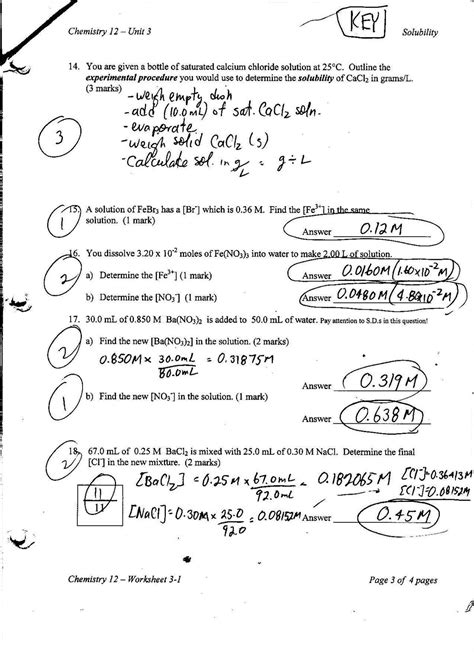 KEY
Chemistry 12 – Unit 3 Solubility
14. You are given a bottle of saturated calcium chloride solution at 25°C. Outline the
experimental procedure you would use to determine the solubility of CaCl₂ in grams/L.
(3 marks)
-weigh empty dish
-add (10.0mL) of sat. CaCl₂ soln.
-evaporate
-weigh solid CaCl₂ (s)
-Calculate sol. in g/L = g ÷ L
3
15. A solution of FeBr₃ has a [Br⁻] which is 0.36 M. Find the [Fe³⁺] in the same
solution. (1 mark)
Answer 0.12 M
1
16. You dissolve 3.20 x 10⁻² moles of Fe(NO₃)₃ into water to make 2.00 L of solution.
a) Determine the [Fe³⁺] (1 mark) Answer 0.0160M (1.60x10⁻²M)
2
b) Determine the [NO₃⁻] (1 mark) Answer 0.0480M (4.80x10⁻²M)
17. 30.0 mL of 0.850 M Ba(NO₃)₂ is added to 50.0 mL of water. Pay attention to S.D.s in this question!
a) Find the new [Ba(NO₃)₂] in the solution. (2 marks)
2
0.850M x 30.0mL/80.0mL = 0.31875M
Answer 0.319 M
b) Find the new [NO₃⁻] in the solution. (1 mark)
1
Answer 0.638 M
18. 67.0 mL of 0.25 M BaCl₂ is mixed with 25.0 mL of 0.30 M NaCl. Determine the final
[Cl⁻] in the new mixture. (2 marks)
2
[BaCl₂] = 0.25M x 67.0mL/92.0mL = 0.182065M [Cl⁻]=0.36413M
[Cl⁻]=0.08152M
11
11
[NaCl] = 0.30M x 25.0/92.0 = 0.08152M Answer 0.45 M
Chemistry 12 – Worksheet 3-1 Page 3 of 4 pages